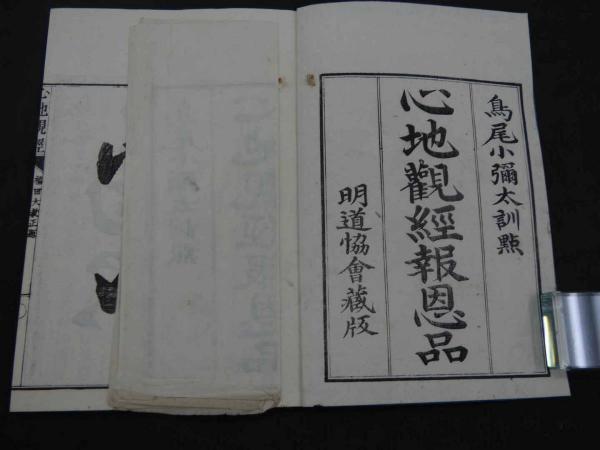 鳥尾小彌太訓點
心地觀經報恩品
明道協會藏版
心地觀經